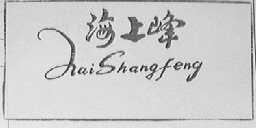 海上峰
HaiShangfeng